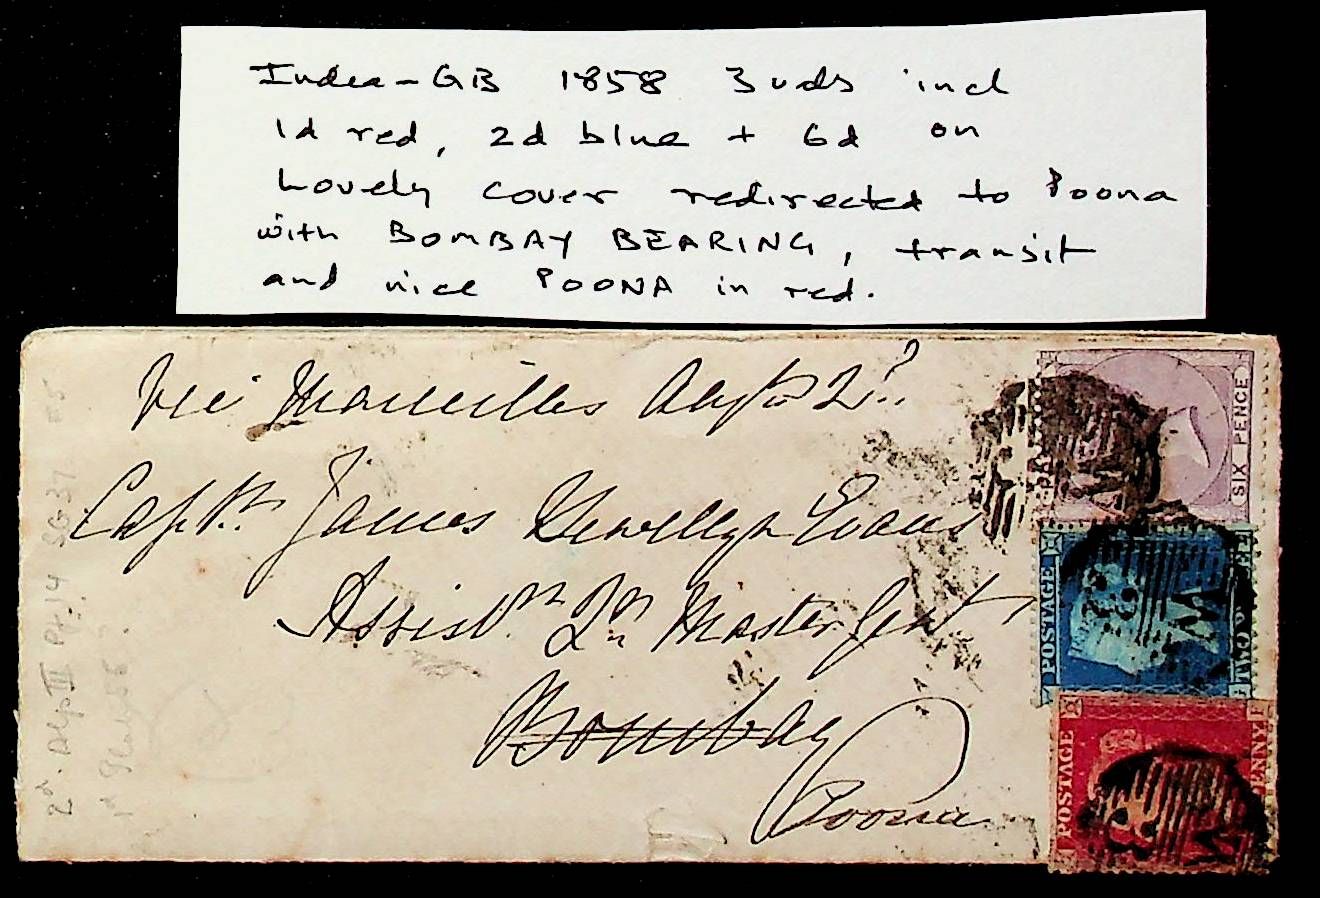 India-GB 1858 3 vals incl
1d red, 2d blue + 6d on
Lovely cover redirected to Poona
with BOMBAY BEARING, transit
and nice POONA in red.
Via Marseilles 2d
Captn. James Llewellyn Evans
Assist. Qr. Master Genl
Bombay
Poona
SIX PENCE
POSTAGE
TWO
POSTAGE
PENNY
2d. Alp III Pl. 14 SG 37
1d